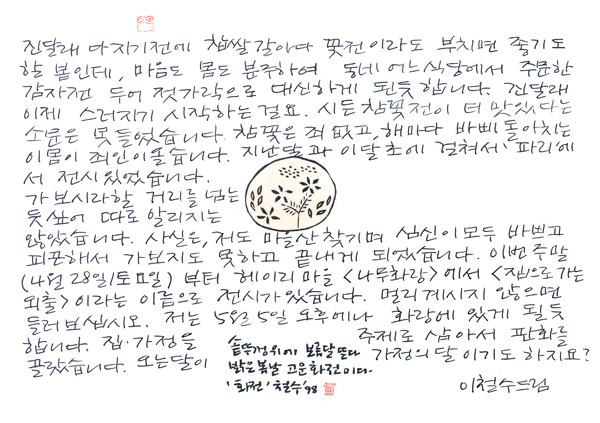 진달래 다 지기전에 찹쌀 갈아다 꽃전이라도 부치면 좋기도
할 봄인데, 마음도 몸도 분주하여 동네 어느식당에서 주문한
감자전 두어 젓가락으로 대신하게 된듯합니다. 진달래
이제 스러지기 시작하는 걸요. 시든 참꽃전이 더 맛있다는
소문은 못들었습니다. 참꽃은 죄 없고, 해마다 바삐 돌아치는
이몸이 죄인이올습니다. 지난달과 이달 초에 걸쳐서 파리에
서 전시있었습니다.
가보시라할 거리를 넘는
듯싶어 따로 알리지는
않았습니다. 사실은, 저도 마을산 찾기며 심신이 모두 바쁘고
피곤해서 가보지도 못하고 끝내게 되었습니다. 이번 주말
(4월 28일/토요일) 부터 헤이리 마을 <나무화랑>에서 <집으로 가는
외출>이라는 이름으로 전시가 있습니다. 멀리 계시지 않으면
들러 보십시오. 저는 5월 5일 오후에나 화랑에 있게 될 듯
합니다. 집·가정을 주제로 삼아서 판화를
골랐습니다. 오는달이 가정의 달이기도 하지요?
솥뚜껑위에 보름달 뜬다
밝은 봄날 고운 화전이다.
'화전' 철수 '98
이철수드림